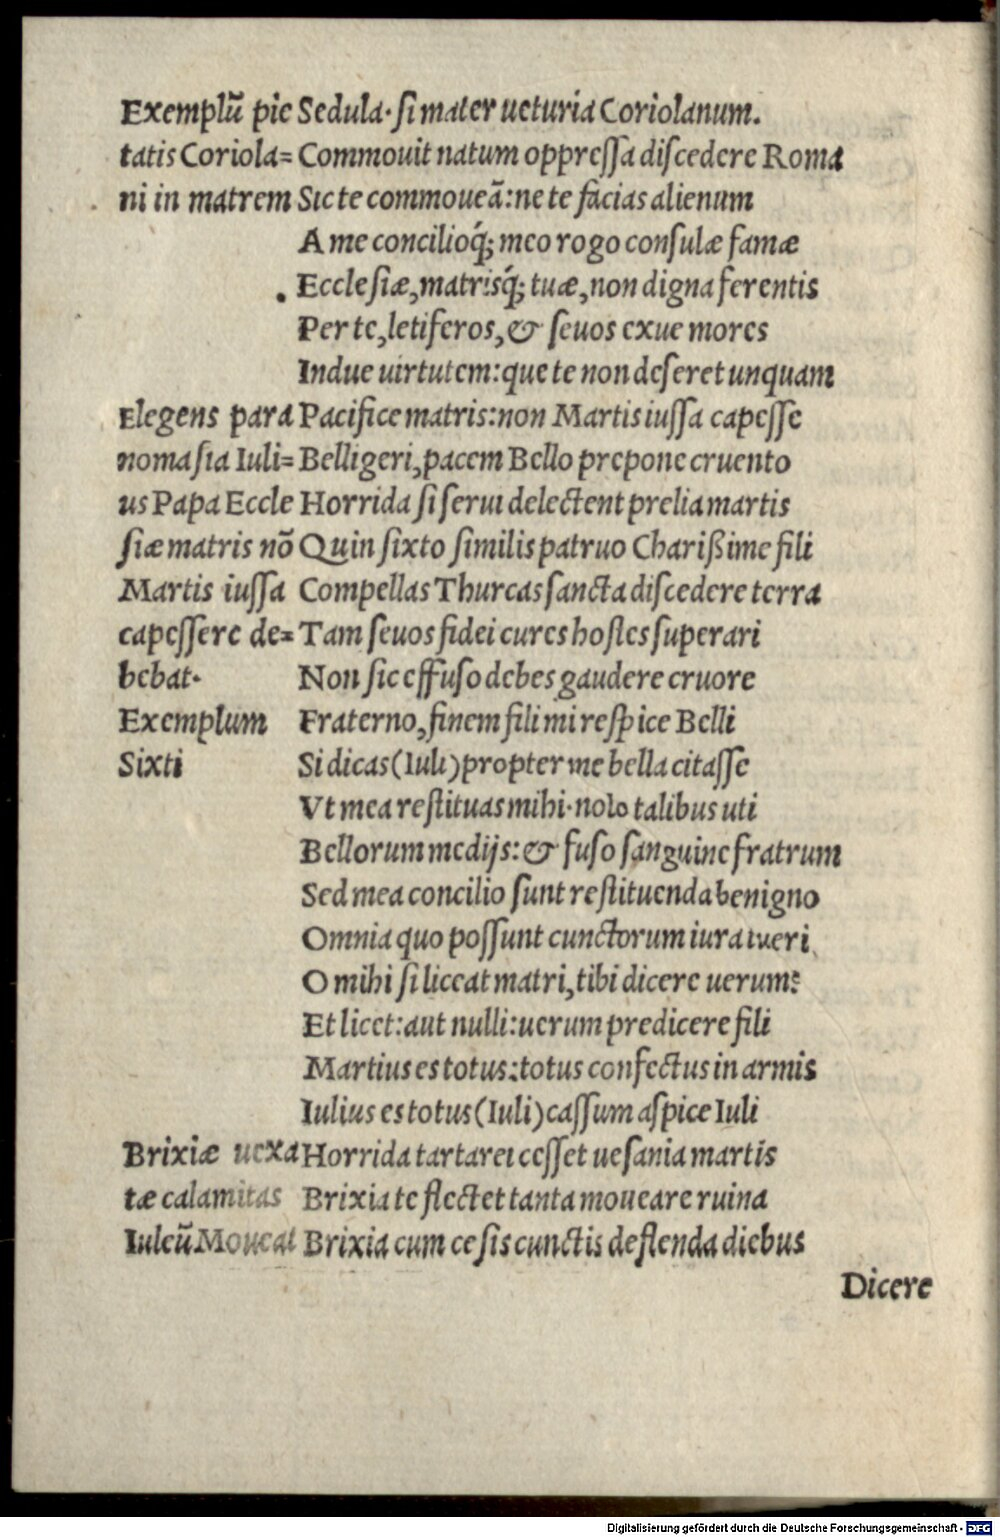 Exemplũ pie Sedula· ſi mater ueturia Coriolanum.
tatis Coriola= Commouit natum oppreſſa diſcedere Roma
ni in matrem Sic te commoueã: ne te facias alienum
A me concilioq́; meo rogo conſulæ famæ
Eccleſiæ, matrisq́; tuæ, non digna ferentis
Per te, letiferos, & ſeuos exue mores
Indue uirtutem: que te non deſeret unquam
Elegens para Pacifice matris: non Martis iuſſa capeſſe
nomaſia Iuli= Belligeri, pacem Bello prepone cruento
us Papa Eccle Horrida ſi ſerui delectent prelia martis
ſiæ matris nõ Quin ſixto ſimilis patruo Charißime fili
Martis iuſſa Compellas Thurcas ſancta diſcedere terra
capeſſere de= Tam ſeuos fidei cures hoſtes ſuperari
bebat· Non ſic effuſo debes gaudere cruore
Exemplum Fraterno, finem fili mi reſpice Belli
Sixti Si dicas (Iuli) propter me bella citaſſe
Vt mea reſtituas mihi· nolo talibus uti
Bellorum medijs: & fuſo ſanguine fratrum
Sed mea concilio ſunt reſtituenda benigno
Omnia quo poſſunt cunctorum iura tueri
O mihi ſi liceat matri, tibi dicere uerum?
Et licet: aut nulli: uerum predicere fili
Martius es totus: totus confectus in armis
Iulius es totus (Iuli) caſſum aſpice Iuli
Brixiæ uexa Horrida tartarei ceſſet ueſania martis
tæ calamitas Brixia te flectet tanta moueare ruina
Iuleũ Moueat Brixia cum ceſis cunctis deflenda diebus
Dicere
Digitalisierung gefördert durch die Deutsche Forschungsgemeinschaft - DFG